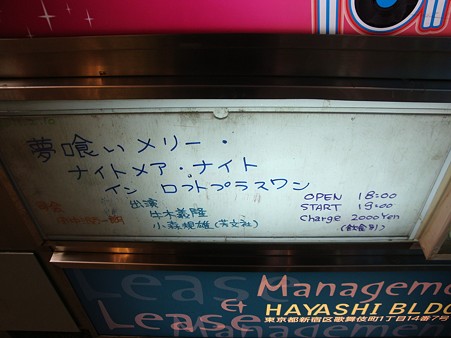 夢喰いメリー・
ナイトメア・ナイト
イン ロフトプラスワン
出演
牛木義隆
小森規雄(芳文社)
OPEN 18:00
START 19:00
Charge 2000Yen
(飲食別)
Lease
Management
Lease & Management
HAYASHI BLDG
東京都新宿区歌舞伎町1丁目14番7号